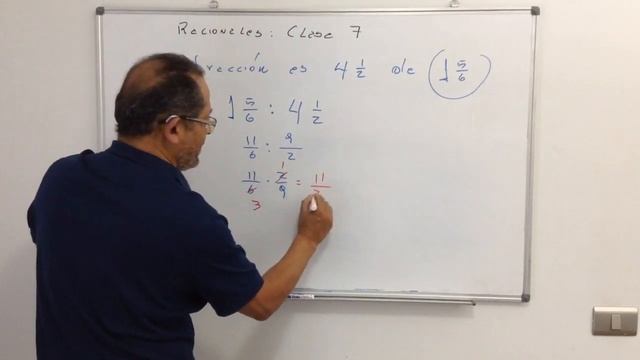 Racionales: Clase 7
fracción es 4 1/2 de 1 5/6
1 5/6 : 4 1/2
11/6 : 9/2
11/6 · 2/9 = 11/
1
3